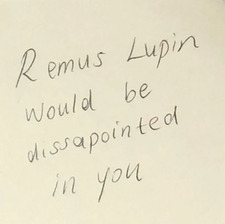 Remus Lupin
would be
dissapointed
in you